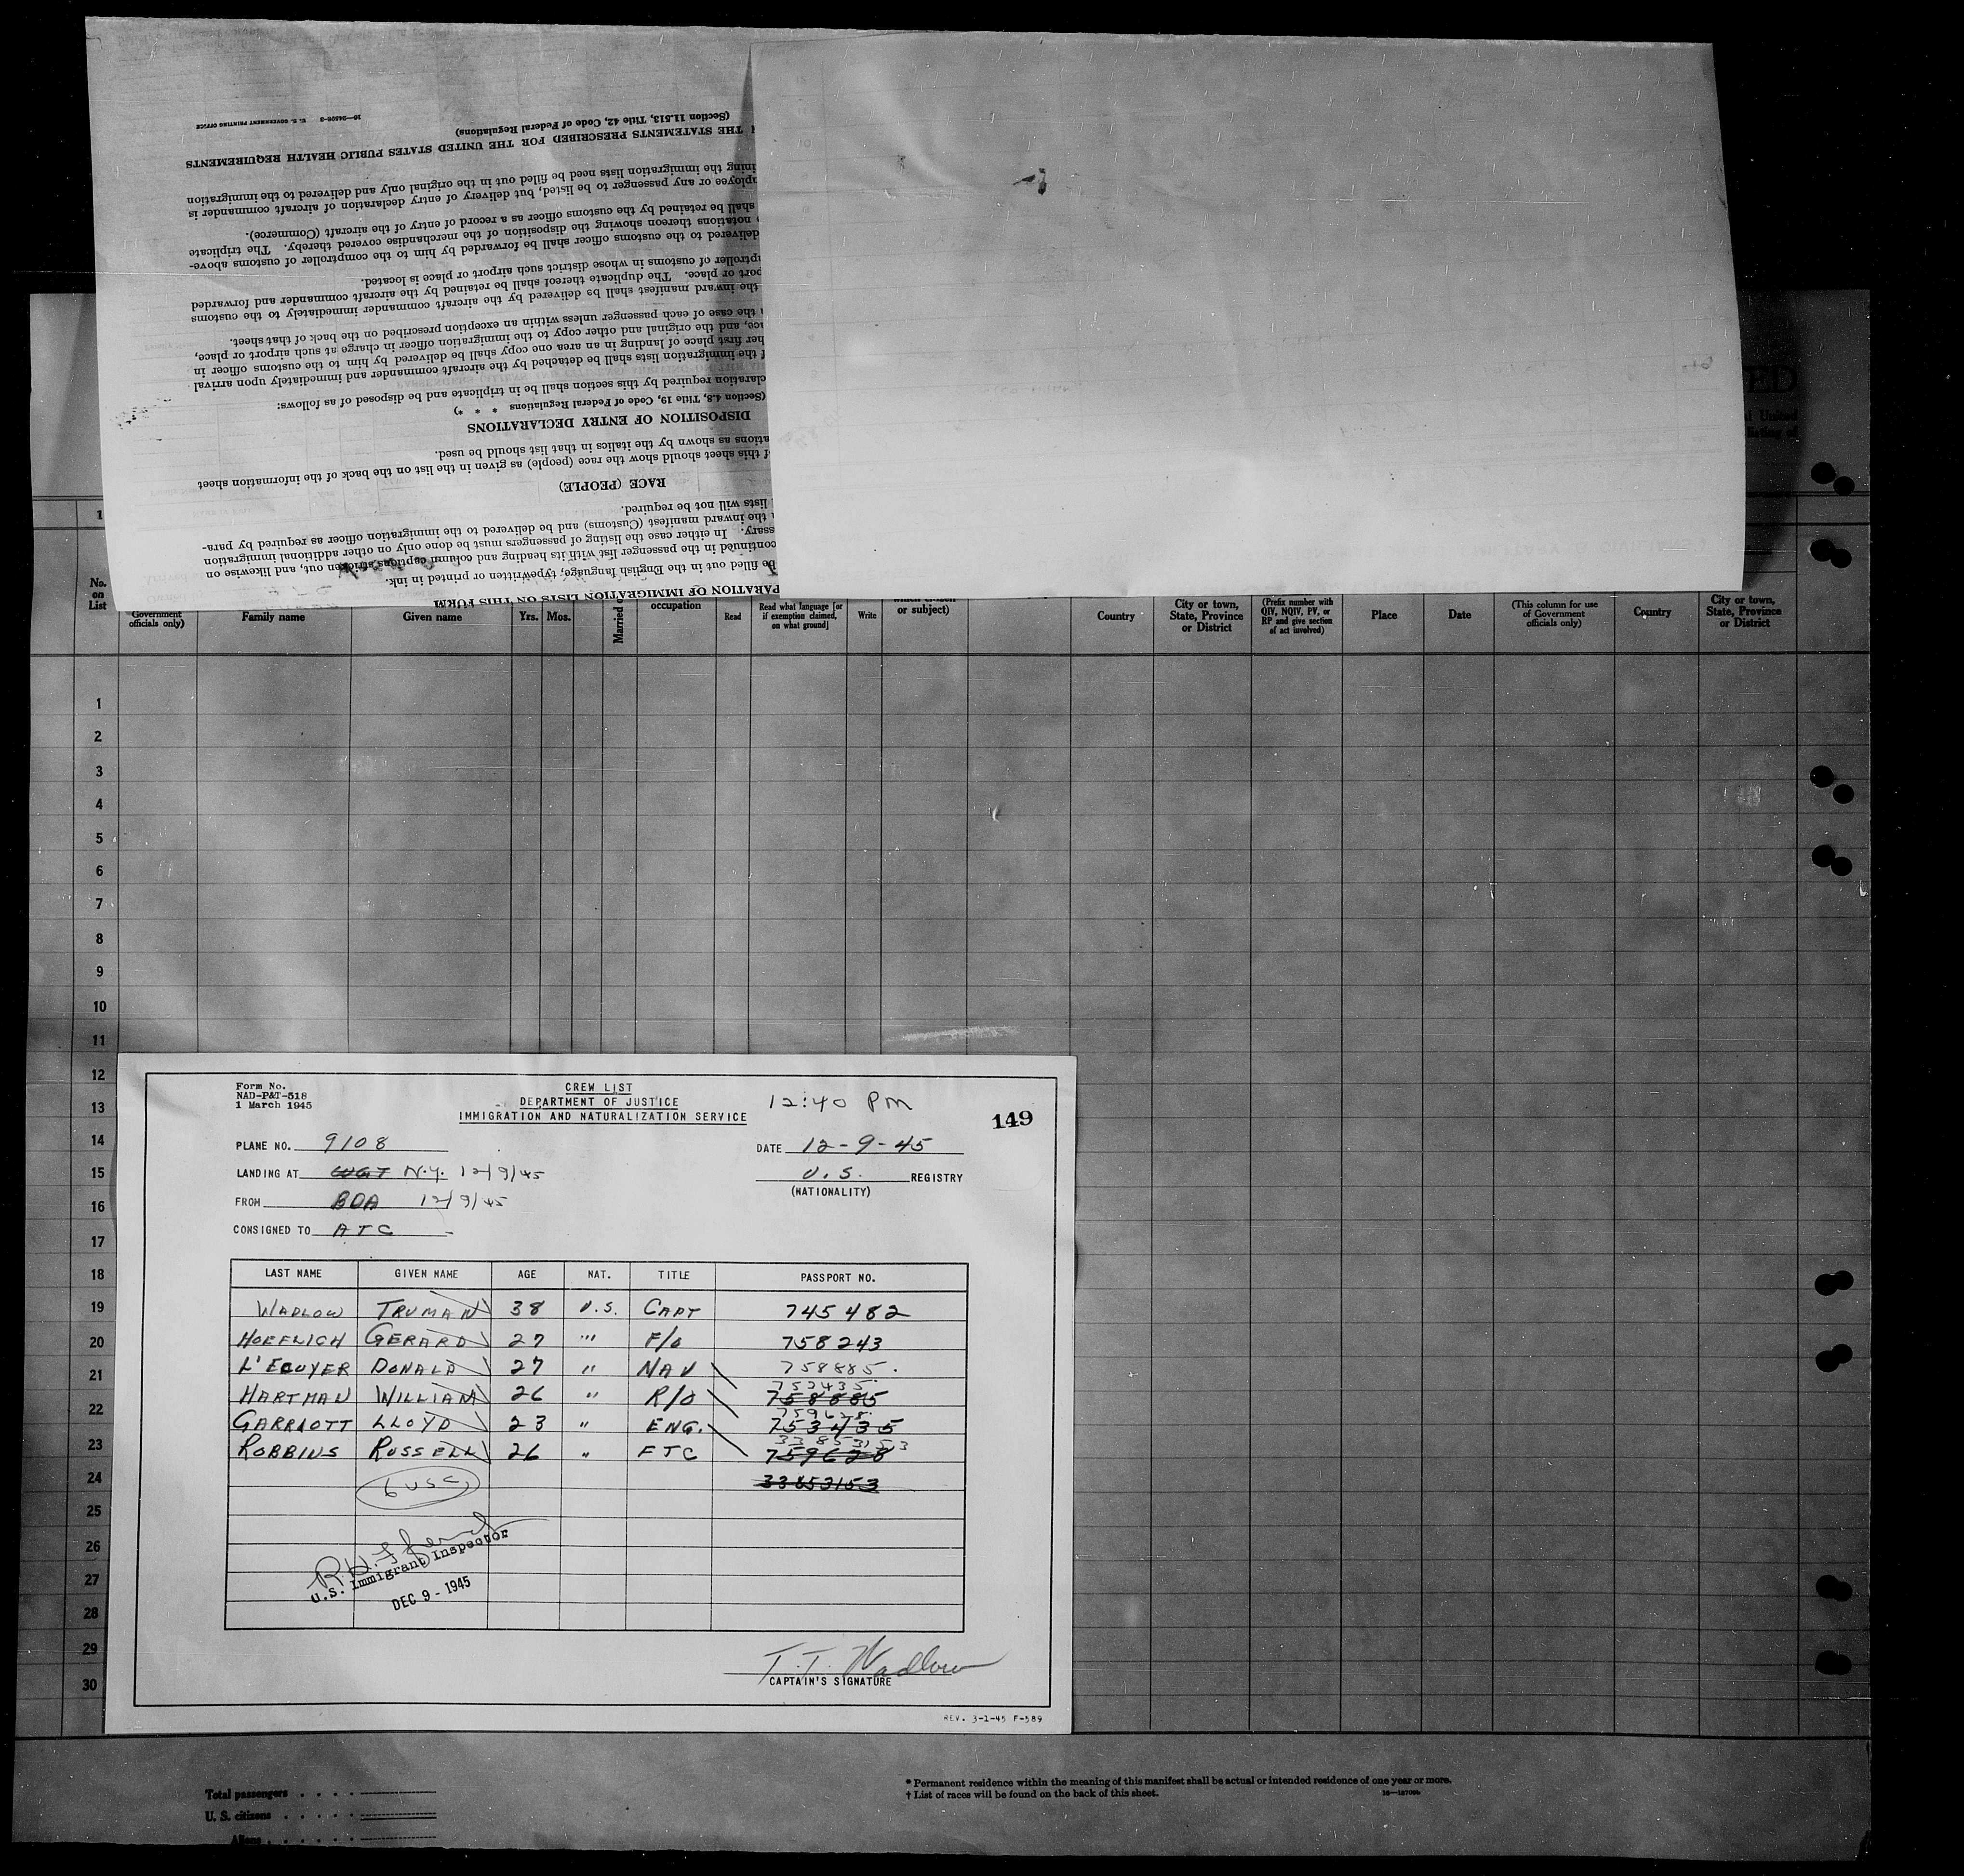 16—24506-2 U. S. GOVERNMENT PRINTING OFFICE
(Section 11.513, Title 42, Code of Federal Regulations)
THE STATEMENTS PRESCRIBED FOR THE UNITED STATES PUBLIC HEALTH REQUIREMENTS
ining the immigration lists need be filled out in the original only and delivered to the immigration
ployee or any passenger to be listed, but delivery of entry declaration of aircraft commander is
shall be retained by the customs officer as a record of entry of the aircraft (Commerce).
notations thereon showing the disposition of the merchandise covered thereby. The triplicate
delivered to the customs officer shall be forwarded by him to the comptroller of customs above-
ptroller of customs in whose district such airport or place is located.
port or place. The duplicate thereof shall be retained by the aircraft commander and forwarded
the inward manifest shall be delivered by the aircraft commander immediately to the customs
the case of each passenger unless within an exception prescribed on the back of that sheet.
ace, and the original and other copy to the immigration officer in charge at such airport or place,
her first place of landing in an area one copy shall be delivered by him to the customs officer in
f the immigration lists shall be detached by the aircraft commander and immediately upon arrival
claration required by this section shall be in triplicate and be disposed of as follows:
(Section 4.8, Title 19, Code of Federal Regulations * * *)
DISPOSITION OF ENTRY DECLARATIONS
ations as shown by the italics in that list should be used.
f this sheet should show the race (people) as given in the list on the back of the information sheet
RACE (PEOPLE)
lists will not be required.
the inward manifest (Customs) and be delivered to the immigration officer as required by para-
ssary. In either case the listing of passengers must be done only on other additional immigration
continued in the passenger list with its heading and column captions stricken out, and likewise on
be filled out in the English language, typewritten or printed in ink.
PARATION OF IMMIGRATION LISTS ON THIS FORM
United
1
No. on List
Government officials only)
Family name
Given name
Yrs.
Mos.
Married
occupation
Read
Read what language [or if exemption claimed, on what ground]
Write
or subject)
Country
City or town, State, Province or District
(Prefix number with QIV, NQIV, PV, or RP and give section of act involved)
Place
Date
(This column for use of Government officials only)
Country
City or town, State, Province or District
1
2
3
4
5
6
7
8
9
10
11
12
13
14
15
16
17
18
19
20
21
22
23
24
25
26
27
28
29
30
Form No.
NAD-P&T-518
1 March 1945
CREW LIST
DEPARTMENT OF JUSTICE
IMMIGRATION AND NATURALIZATION SERVICE
12:40 PM
149
PLANE NO. 9108
DATE 12-9-45
LANDING AT WGT N.Y. 12/9/45
U.S. REGISTRY
(NATIONALITY)
FROM BDA 12/9/45
CONSIGNED TO ATC
LAST NAME GIVEN NAME AGE NAT. TITLE PASSPORT NO.
WADLOW TRUMAN 38 U.S. CAPT 745482
HOEFLICH GERARD 27 " F/O 758243
L'ECUYER DONALD 27 " NAV 758885
753435
HARTMAN WILLIAM 26 " R/O 758885
759628
GARRIOTT LLOYD 23 " ENG. 753435
33853153
ROBBINS RUSSELL 26 " FTC 759628
6 USC 33853153
U.S. Immigrant Inspector
DEC 9 - 1945
T. T. Wadlow
CAPTAIN'S SIGNATURE
REV. 3-1-45 F-589
Total passengers
U. S. citizens
Aliens
* Permanent residence within the meaning of this manifest shall be actual or intended residence of one year or more.
† List of races will be found on the back of this sheet.